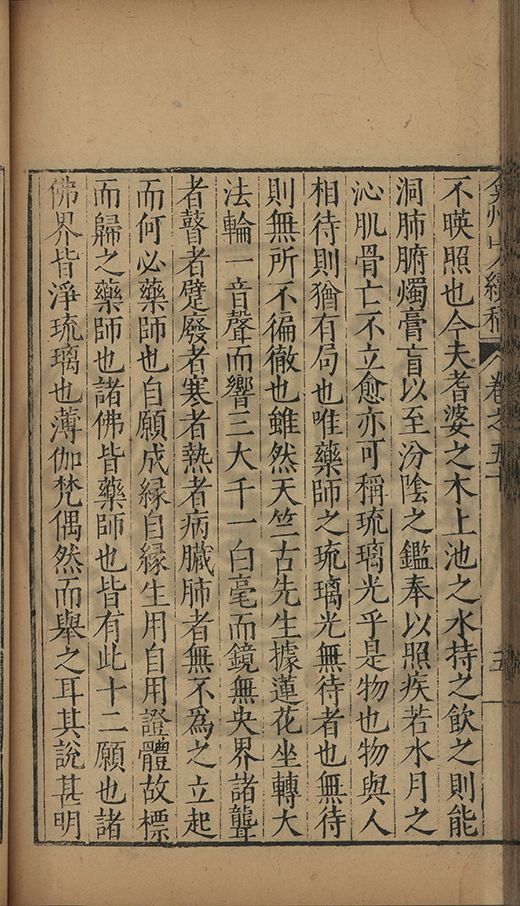 弇州山人續稿 卷之五十 五
不暎照也今夫耆婆之木上池之水持之飲之則能
洞肺腑燭膏肓以至汾陰之鑑奉以照疾若水月之
沁肌骨亡不立愈亦可稱琉璃光乎是物也物與人
相待則猶有局也唯藥師之琉璃光無待者也無待
則無所不徧徹也雖然天竺古先生據蓮花坐轉大
法輪一音聲而響三大千一白毫而鏡無央界諸聾
者瞽者躄廢者寒者熱者病臟肺者無不爲之立起
而何必藥師也自願成縁自縁生用自用證體故標
而歸之藥師也諸佛皆藥師也皆有此十二願也諸
佛界皆淨琉璃也薄伽梵偶然而舉之耳其說甚明